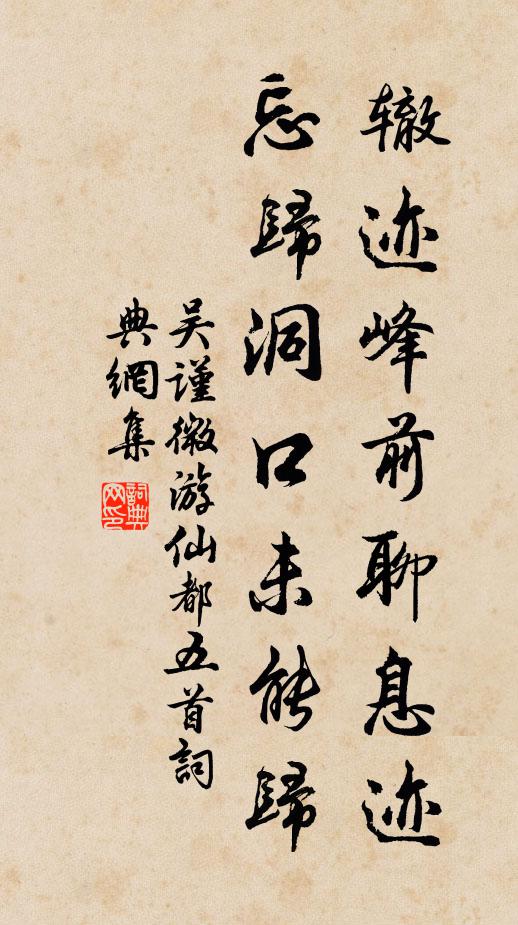 辙迹峰前聊息迹
忘歸洞口未能歸
吴谨微游仙都五首詞
典網集
詞典
网印